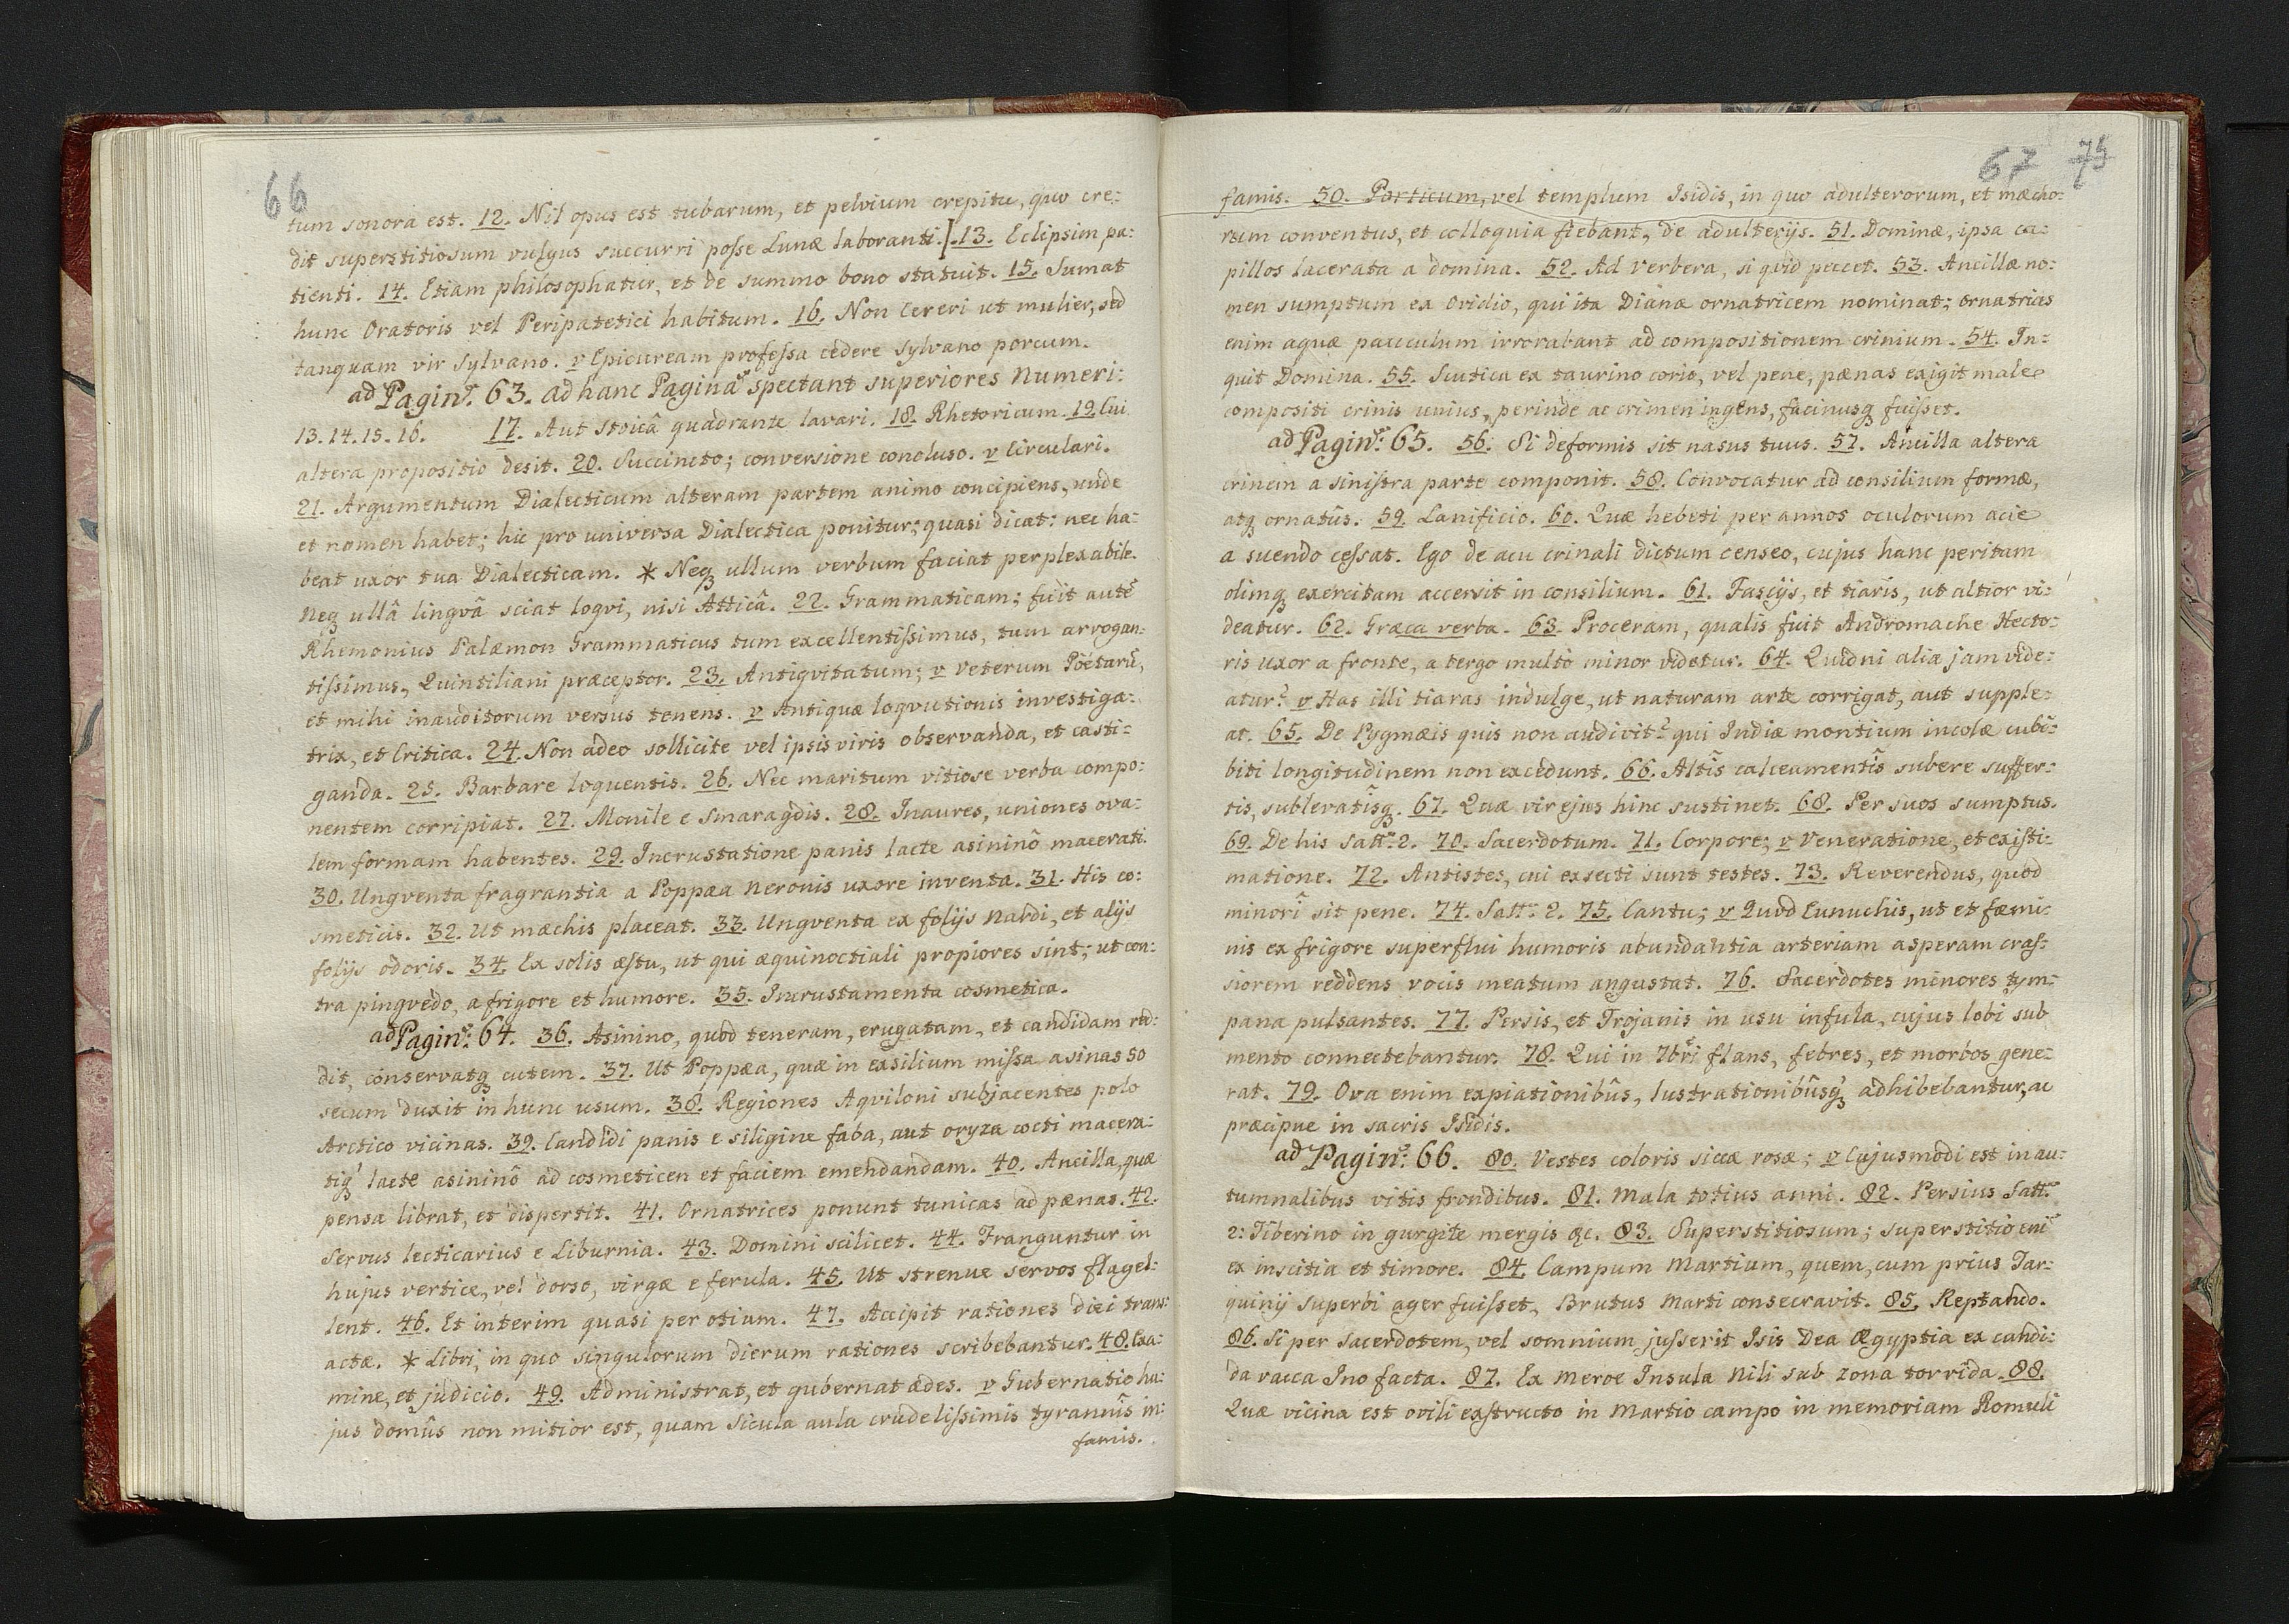 66
tum sonora est. 12. Nil opus est tubarum, et pelvium crepitu, quo cre:
dit superstitiosum vulgus succurri posse Lunæ laboranti. 13. Eclipsim pa:
tienti. 14. Etiam philosophatur, et de summo bono statuit. 15. Sumat
hunc Oratoris vel Peripatetici habitum. 16. Non Cereri ut mulier, sed
tanquam vir Sylvano. v Epicuream professa cedere Sylvano porcum.
ad Pagin: 63. ad hanc Paginã spectant superiores Numeri:
13. 14. 15. 16. 17. Aut Stoicâ quadrante lavari. 18. Rhetoricum. 19. Cui
altera propositio desit. 20. Succincto; conversione concluso. v Circulari.
21. Argumentum Dialecticum alteram partem animo concipiens, unde
et nomen habet; hic pro universa Dialectica ponitur; quasi dicat: nec ha:
beat uxor tua Dialecticam. * Neq ullum verbum faciat perplexabile.
Neq ullâ lingvâ sciat loqvi, nisi Atticâ. 22. Grammaticam; fuit autẽ
Rhemonius Palæmon Grammaticus tum excellentissimus, tum arrogan:
tissimus, Quintiliani præceptor. 23. Antiqvitatum; v veterum Poëtarũ,
et mihi inauditorum versus tenens. v Antiquæ loqvutionis investiga:
trix, et Critica. 24. Non adeo sollicite vel ipsis viris observanda, et casti:
ganda. 25. Barbare loquentis. 26. Nec maritum vitiose verba compo:
nentem corripiat. 27. Monile e Smaragdis. 28. Inaures, uniones ova:
lem formam habentes. 29. Incrustatione panis lacte asininô macerati.
30. Ungventa fragrantia a Poppæa Neronis uxore inventa. 31. His co:
smeticis. 32. Ut mæchis placeat. 33. Ungventa ex folijs Nardi, et alijs
folijs odoris. 34. Ex solis æstu, ut qui æquinoctiali propiores sint; ut con:
tra pingvedo, a frigore et humore. 35. Incrustamenta cosmetica.
ad Pagin: 64. 36. Asinino, quod teneram, erugatam, et candidam red:
dit, conservatq cutem. 37. Ut Poppæa, quæ in exsilium missa asinas 50
secum duxit in hunc usum. 38. Regiones Aqviloni subjacentes polo
Arctico vicinas. 39. Candidi panis e siligine faba, aut oryza cocti macera:
tiq lacte asininô ad cosmeticen et faciem emendandam. 40. Ancilla, quæ
pensa librat, et dispertit. 41. Ornatrices ponunt tunicas ad pænas. 42.
Servus lecticarius e Liburnia. 43. Domini scilicet. 44. Franguntur in
hujus vertice, vel dorso, virgæ e ferula. 45. Ut strenue servos flagel:
lent. 46. Et interim quasi per otium. 47. Accipit rationes diei trans:
actæ. * Libri, in quo singulorum dierum rationes scribebantur. 48. Exa:
mine, et judicio. 49. Administrat, et gubernat ædes. v Gubernatio hu:
jus domûs non mitior est, quam Sicula aula crudelissimis tyrannîs in:
famis.
67
famis. 50. Porticum, vel templum Isidis, in quo adulterorum, et mæcho:
rum conventus, et colloquia fiebant, de adulterijs. 51. Dominæ, ipsa ca:
pillos lacerata a domina. 52. Ad verbera, si quid peccet. 53. Ancillæ no:
men sumptum ex Ovidio, qui ita Dianæ ornatricem nominat; Ornatrices
enim aquæ pauculum irrorabant ad compositionem crinium. 54. In:
quit Domina. 55. Scutica ex taurino corio, vel pene, pænas exigit male
compositi crinis unius, perinde ac crimen ingens, facinusq fuisset.
ad Pagin: 65. 56. Si deformis sit nasus tuus. 57. Ancilla altera
crinem a sinistra parte componit. 58. Convocatur ad consilium formæ,
atq ornatûs. 59. Lanificio. 60. Quæ hebeti per annos oculorum acie
a suendo cessat. Ego de acu crinali dictum censeo, cujus hanc peritam
olimq exercitam accersit in consilium. 61. Fascijs, et tiaris, ut altior vi:
deatur. 62. Græca verba. 63. Proceram, qualis fuit Andromache Hecto:
ris uxor a fronte, a tergo multò minor videtur. 64. Quidni alia jam vide:
atur? v Has illi tiaras indulge, ut naturam arte corrigat, aut supple:
at. 65. De Pygmæis quis non audivit? qui Indiæ montium incolæ cubi:
biti longitudinem non excedunt. 66. Altîs calceamentîs subere suffer:
tis, sublevatîsq. 67. Quæ vir ejus hinc sustinet. 68. Per suos sumptus.
69. De his Satt. 2. 70. Sacerdotum. 71. Corpore; v Veneratione, et existi:
matione. 72. Antistes, cui exsecti sunt testes. 73. Reverendus, quod
minori sit pene. 74. Satt. 2. 75. Cantu; v Quod Eunuchis, ut et fæmi:
nis ex frigore superflui humoris abundantia arteriam asperam cras:
siorem reddens vocis meatum angustat. 76. Sacerdotes minores tym:
pana pulsantes. 77. Persis, et Trojanis in usu infula, cujus lobi sub
mento connectebantur. 78. Qui in 7bri flans, febres, et morbos gene:
rat. 79. Ova enim expiationibûs, lustrationibûsq adhibebantur, ac
præcipue in sacris Isidis.
ad Pagin: 66. 80. Vestes coloris siccæ rosæ; v Cujusmodi est in au:
tumnalibus vitis frondibus. 81. Mala totius anni. 82. Persius Satt.
2: Tiberino in gurgite mergis &c. 83. Superstitiosum; superstitio enĩ
ex inscitia et timore. 84. Campum Martium, quem, cum prius Tar:
quinij Superbi ager fuisset, Brutus Marti consecravit. 85. Reptando.
86. Si per Sacerdotem, vel somnium jusserit Isis Dea Ægyptia ex candi:
da vacca Ino facta. 87. Ex Meroe Insula Nili sub zona torrida. 88.
Quæ vicina est ovili exstructo in Martio campo in memoriam Romuli